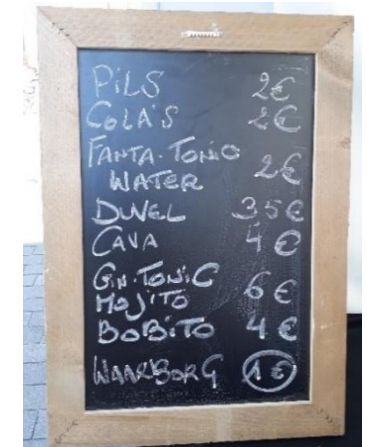 PILS 2€
COLA'S 2€
FANTA-TONIC
WATER 2€
DUVEL 35€
CAVA 4€
GIN-TONIC
MOJITO 6€
BOBITO 4€
WAARBORG 1€